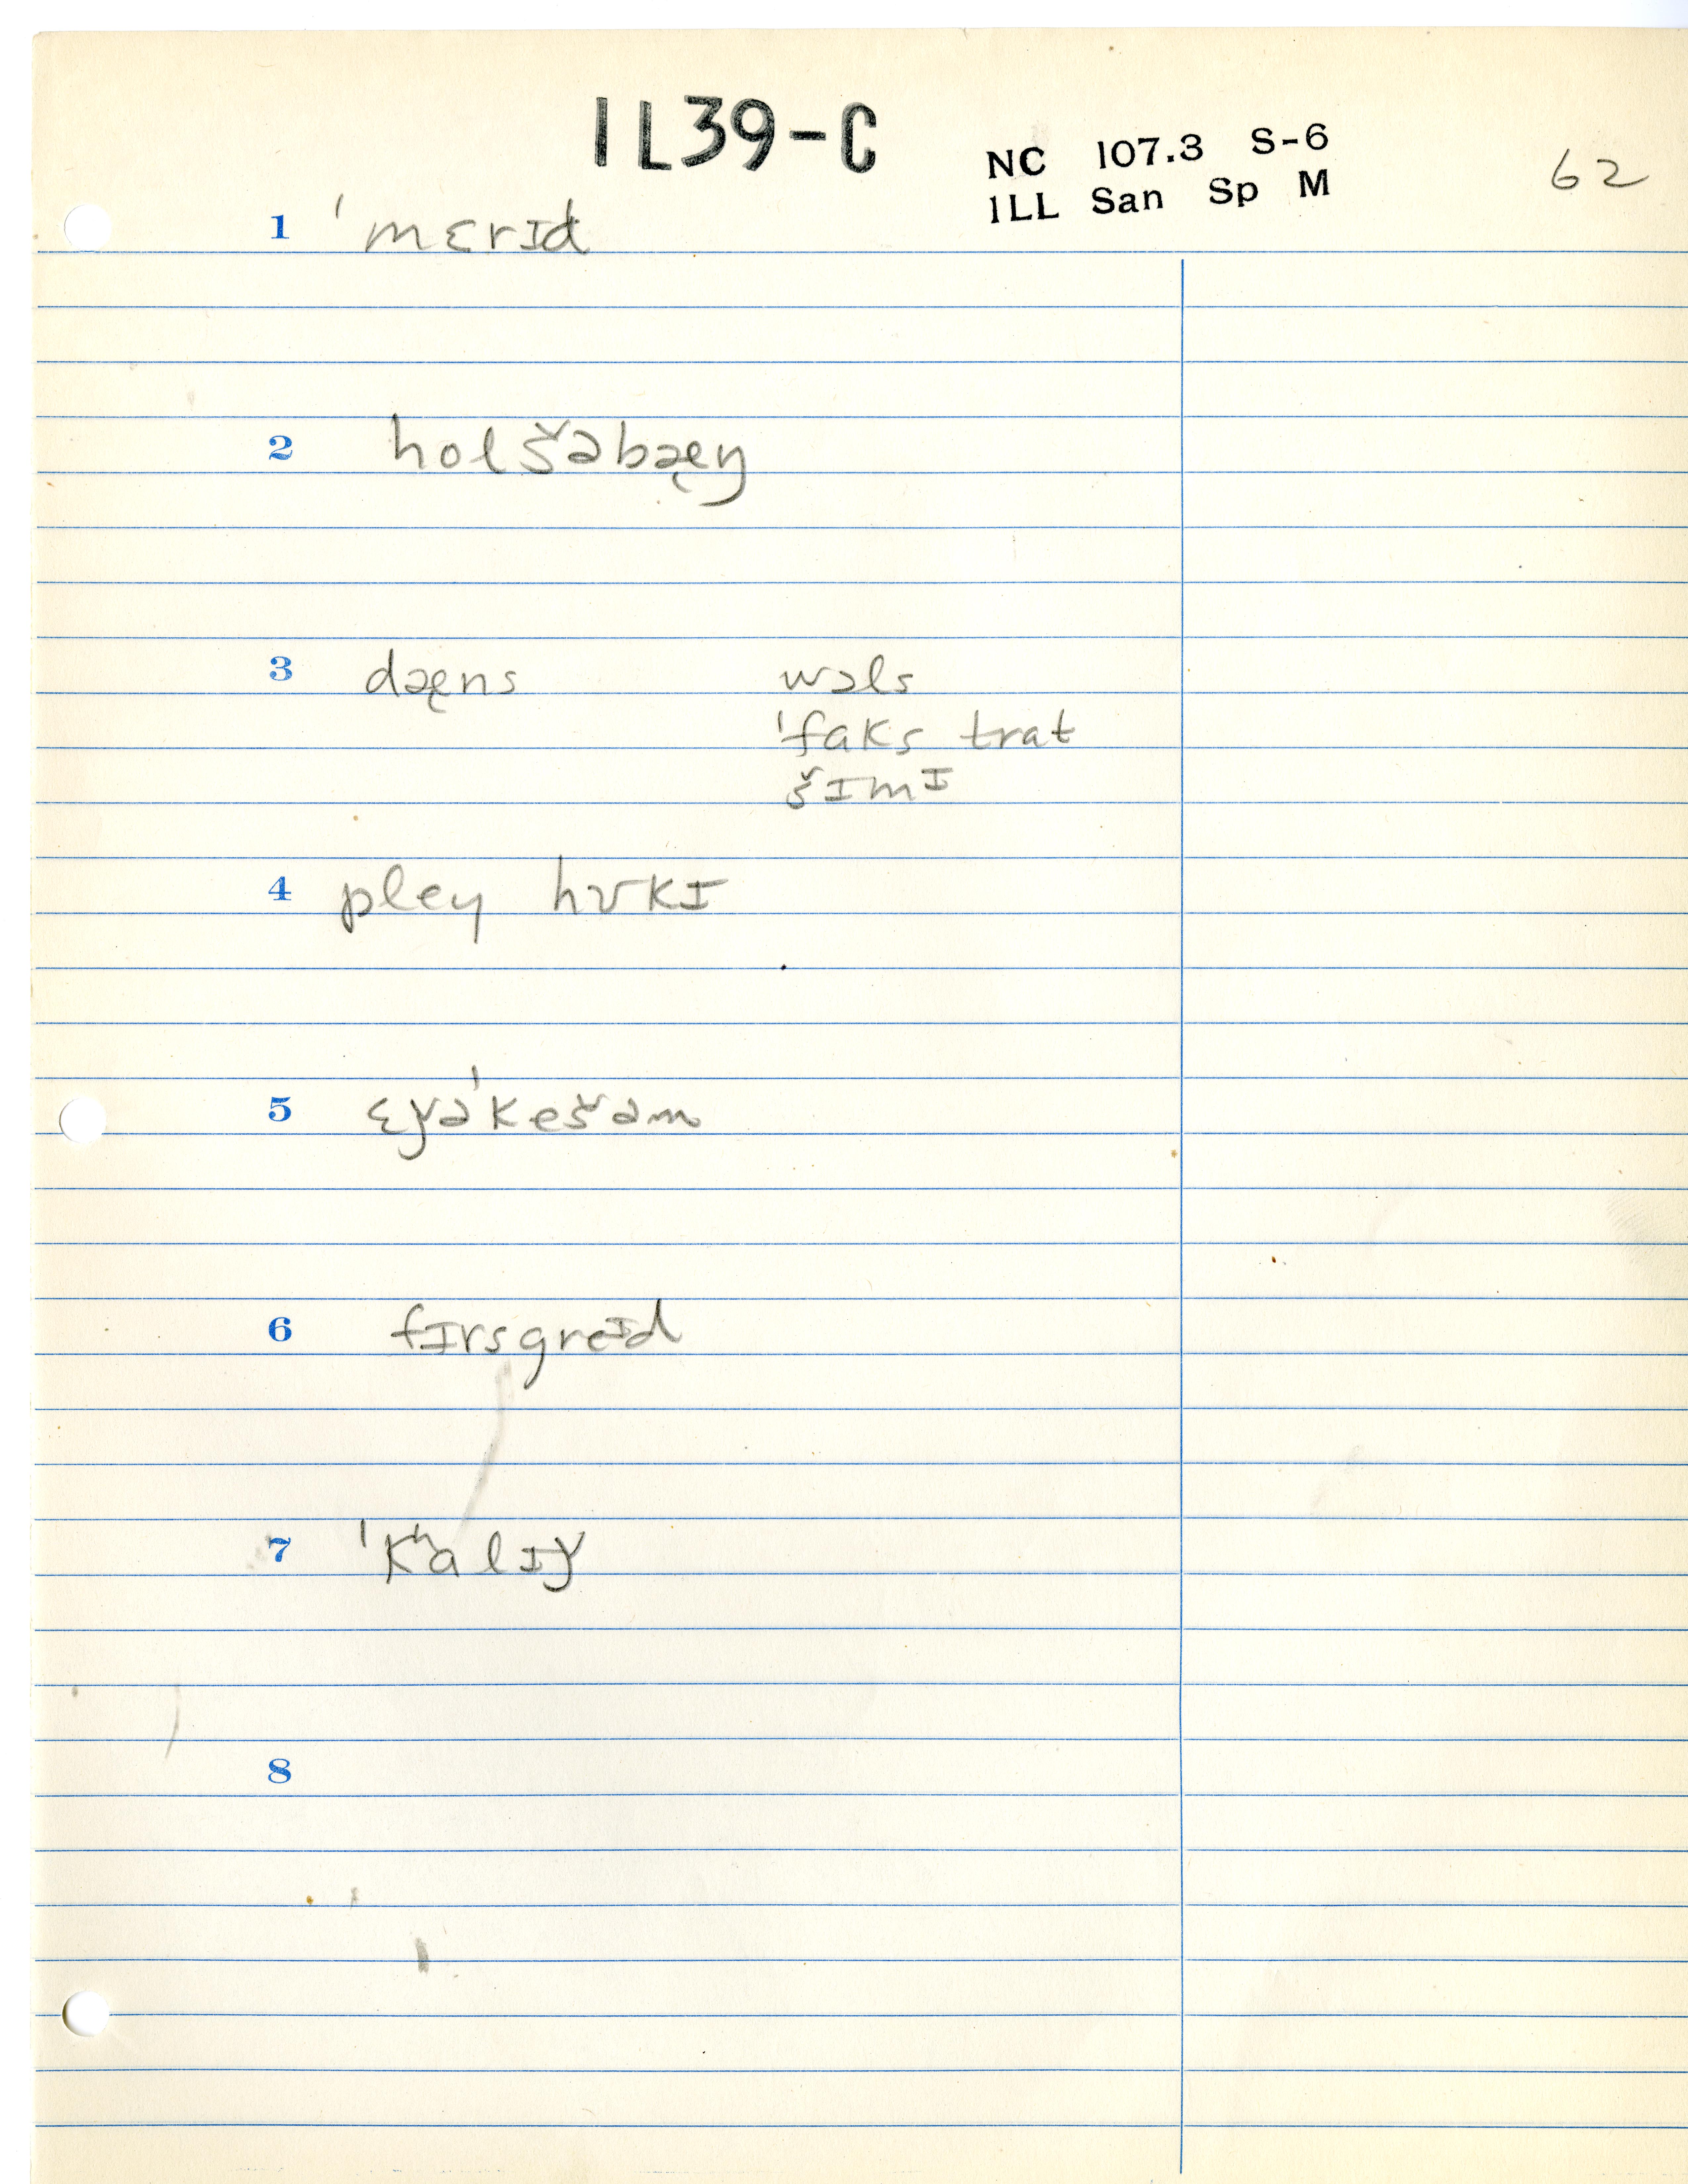 1L39-C
NC 107.3 S-6
1LL San Sp M
62
1 'mɛrɪd
2 holšəbæ̨ŋ
3 dæ̨ns wɔls
'faks trat
šɪmɪ
4 pley hʊkɪ
5 ɛǰə'kešəm
6 fɪrsgreɪd
7 'kʰalɪǰ
8